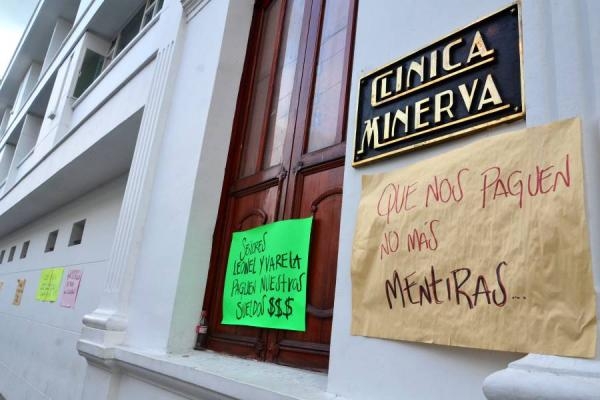 CLINICA
MINERVA
QUE NOS PAGUEN
NO MÁS
MENTIRAS...
SEÑORES
LEONEL Y VARELA
PAGUEN NUESTROS
SUELDOS $$$